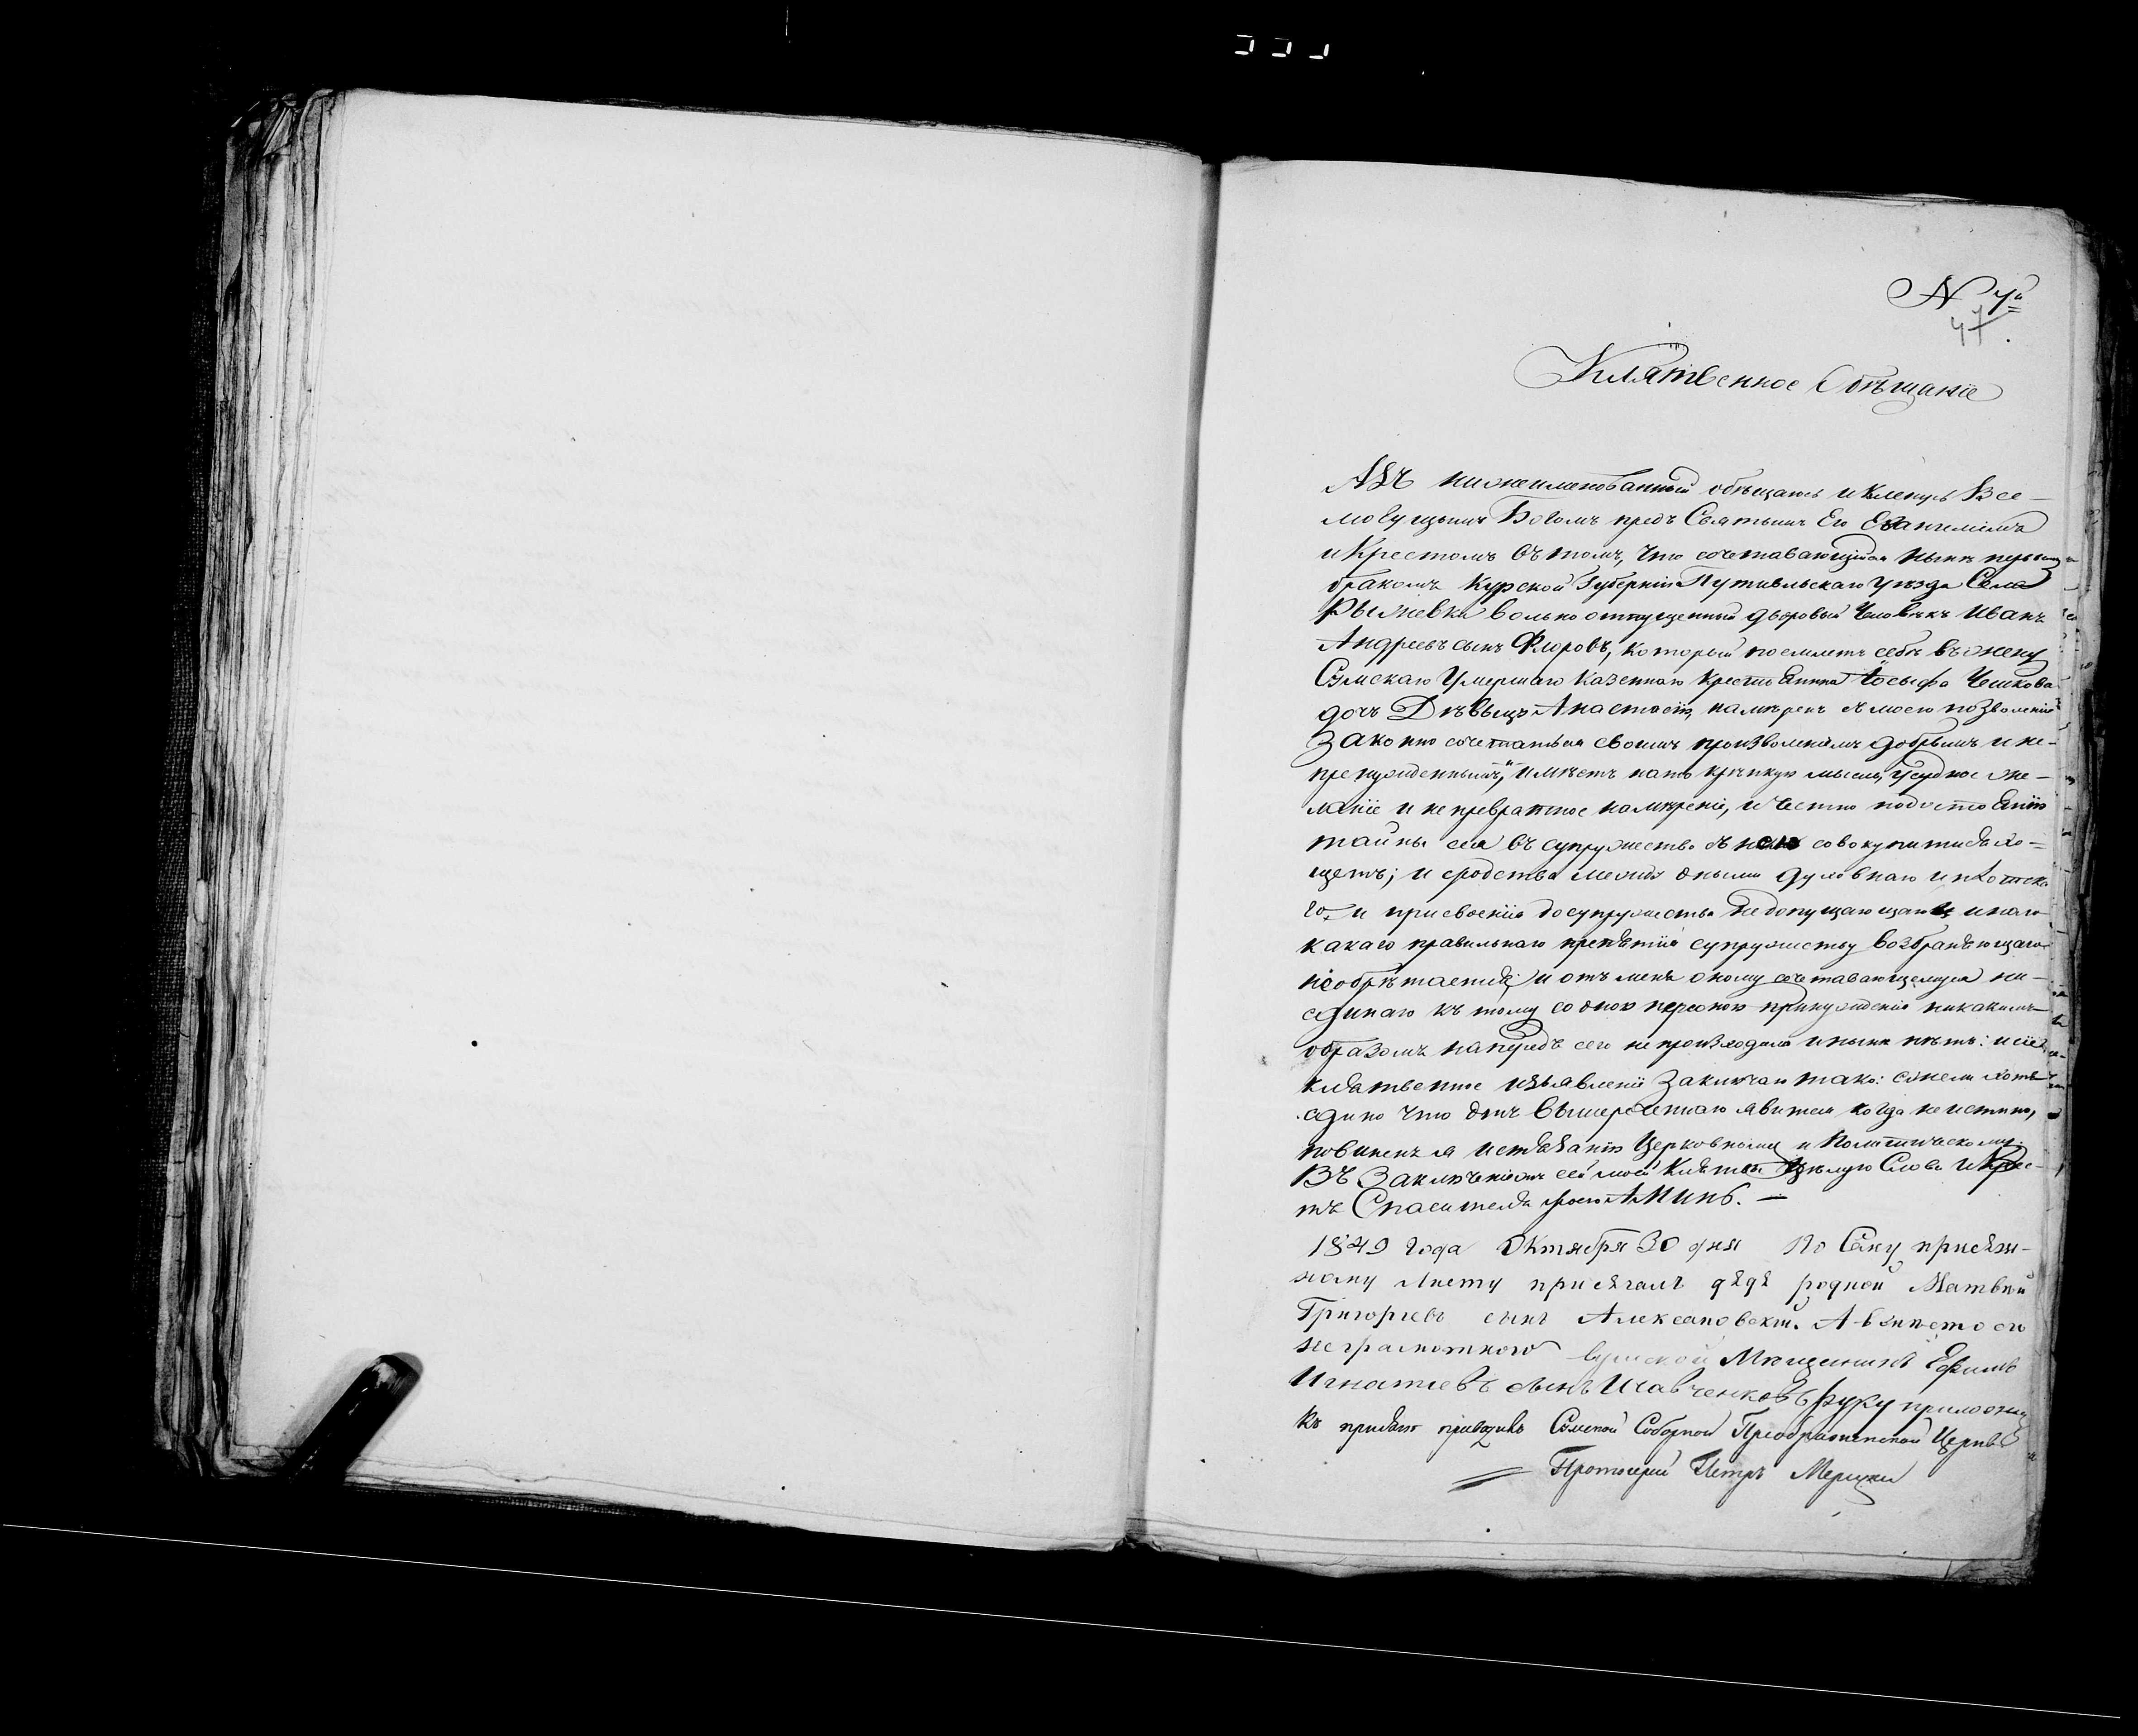 N 4й
47.
Клятвенное Обѣщаніе
Азъ нижеименованный обѣщаюсь и кленусь Все-
могущымъ Богомъ предъ Святымъ Его Евангеліемъ
и Крестомъ въ томъ, что сочетавающійся нынѣ первымъ
бракомъ Курской Губерніи Путивльскаго уѣзда Села
Рыжевки вольно отпущенный дворовый Человѣкъ Иванъ
Андреевъ сынъ Флоровъ, который поемлетъ себѣ въ жену
Сумскаго Умершаго казеннаго крестьянина Іосыфа Чешкова
дочь Дѣвыцу Анастасію, намѣренъ съ моего позволенія
законно сочетаться своимъ произволеніемъ добрымъ и не-
пренужденнымъ, и имѣетъ на то крѣпкую мысль, усердное же-
ланіе и не превратное намѣреніе, и честно по достоянію
тайны сея въ супружество съ нею совокупитися хо-
щетъ; и сродства между оными духовнаго и плотска
го, и присвоенія до супружества недопущающаго и инаго
какаго правильнаго препятія супружеству возбраняющаго
необрѣтается; и отъ меня оному сочетавающемуся ни-
единаго къ тому со оною персоною принужденія никакимъ
образомъ напередъ сего не произходило и нынѣ нѣтъ: и сіе
клятвенное изъявленіе заключаю тако: ежели хотя
едино что отъ вышереченнаго явится когда не истинно,
повиненъ я истязанію Церковному и Политическому.
Въ заключеніемъ сей моей Клятвы Цѣлую Слова и Крес-
тъ Спасителя моего Аминь. —
1849 года Октября 30 дня По Сему присяж-
ному листу присягалъ дядя родной Матвѣй
Григорьевъ сынъ Александовскій. А вмѣсто его
неграмотного Сумской Мѣщенинъ Ефимъ
Игнатьевъ сынъ Исавченковъ руку приложилъ
Къ присягѣ приводилъ Сумской Соборной Преображенской Церкви
Протоіерей Петръ